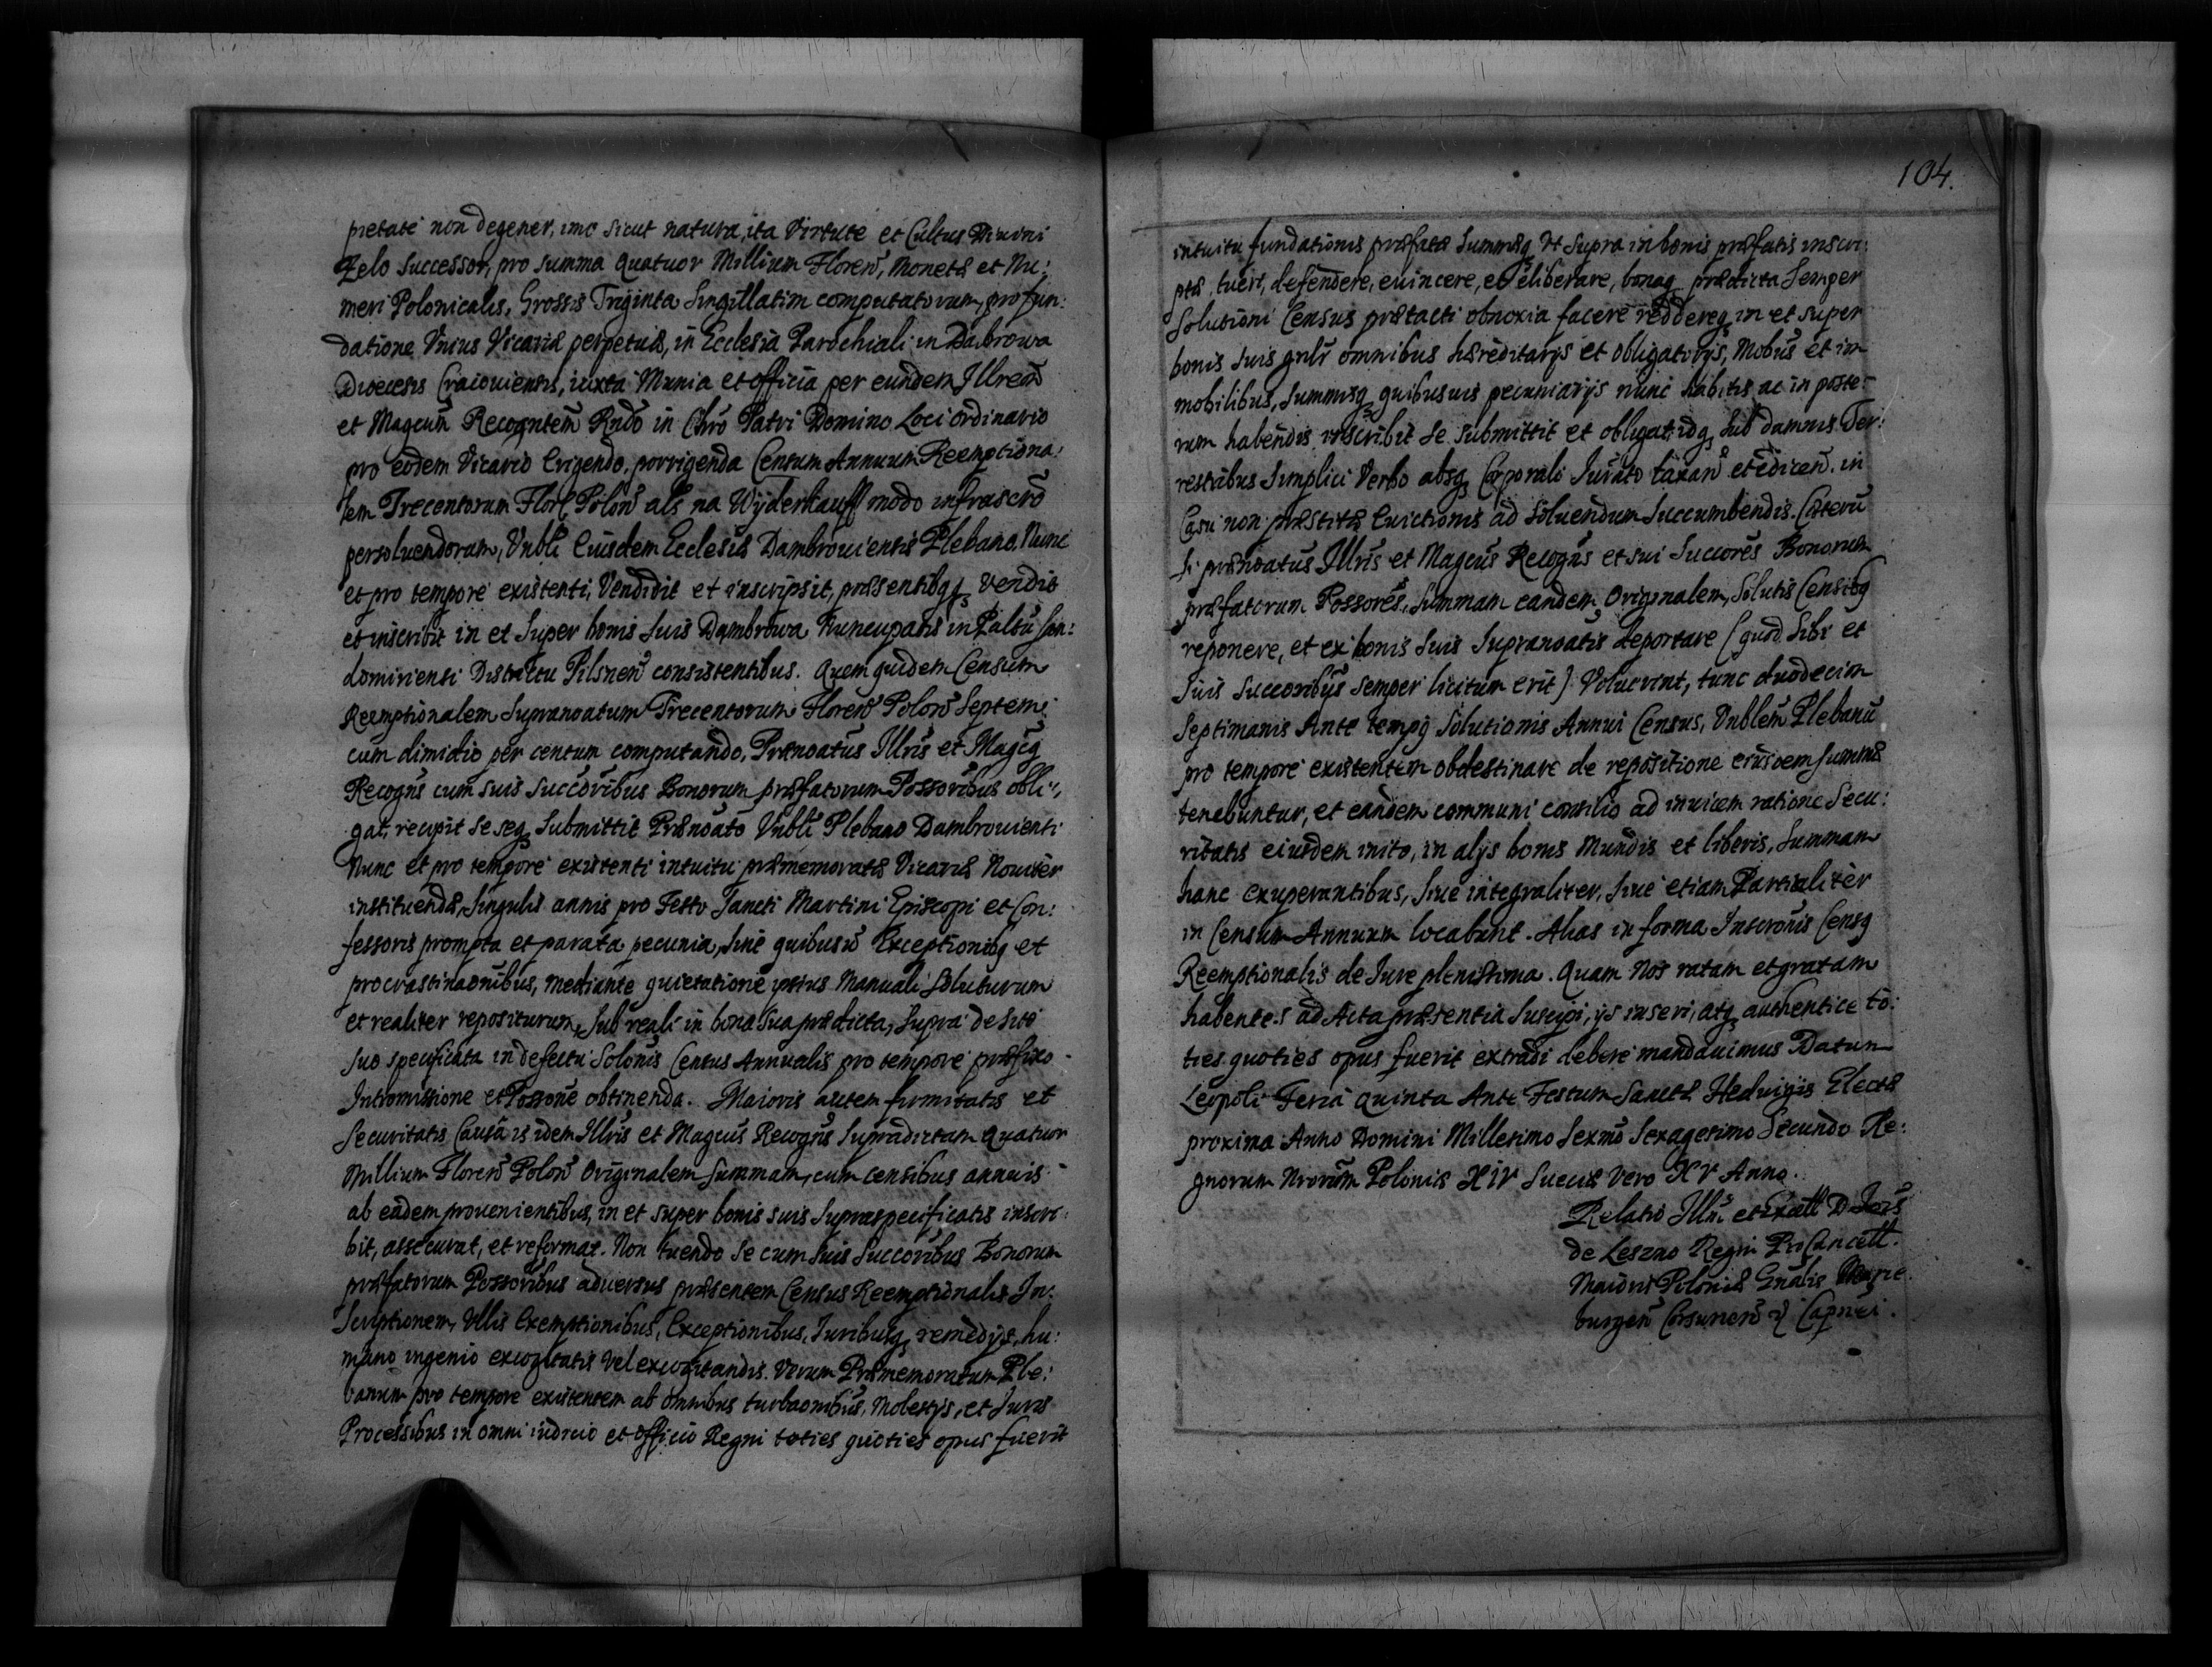 pietate non degener, imo sicut natura, ita Virtute et Cultus Diuini
Zelo Successor, pro summa Quatuor Millium Floren̄, Monetæ et Nu:
meri Polonicalis, Grossis Triginta Singillatim computatorum, pro fun:
datione Vnius Vicariæ perpetuæ, in Ecclesia Parochiali in Dąbrowa
Diœcesis Cracouiensis, iuxta Munia et officia per eundem Illrem
et Magcum̄ Recogntem̄ Rndō in Chrō Patri Domino Loci Ordinario
pro eodem Vicario Erigendo, porrigenda Censum Annuum Reemptiona:
lem Trecentorum Flor Polon̄ als na Wyderkauff modo infrascrō
persoluendorum, Vnbli Eiusdem Ecclesiæ Dambrouiensis Plebano Nunc
et pro tempore existenti, Vendidit et inscripsit, præsentibqꝫ vendit
et inscribit in et Super bonis suis Dąmbrowa Nuncupatis in Paltū San:
domiriensi Districtu Pilsnen̄ consistentibus. Quem quidem Censum
Reemptionalem Supranoatum Trecentorum Floren̄ Polon̄ Septem:
cum dimidio per centum computando, Prænoatus Illris et Magcq
Recogns cum suis Succōribus Bonorum præfatorum Possōribus obli:
gat, recipit se seqꝫ Submittit Prænoato Vnbli Plebano Dambrouiensi
Nunc et pro tempore existenti intuitu præmemoratæ Vicariæ Nouiter
instituendæ, Singulis annis pro Festo Sancti Martini Episcopi et Con:
fessoris prompta et parata pecunia, sine quibusuis Exceptionibq et
procrastinaōnibus, mediante quietatione ipsius Manuali soluturum
et realiter repositurum, Sub reali in bona sua prædicta, Supra de situ
suo specificata in defectu Solōnis Census Annualis pro tempore præfixo
Intromissione et Possone obtinenda. Maioris autem firmitatis et
Securitatis Causa is idem Illris et Magcus Recogns Supradictam Quatuor
Millium Floren̄ Polon̄ Originalem Summam, cum censibus annuis
ab eadem prouenientibus, in et super bonis suis Supraspecificatis inscri:
bit, assecurat, et reformat. Non tuendo se cum suis Succōribus Bonorum
præfatorum Possōribus aduersus præsentem Census Reemptionalis In:
scriptionem, Vllis Exemptionibus, Exceptionibus, Iuribusqꝫ remedijs, hu:
mano ingenio excogitatis vel excogitandis. Verum Præmemoratum Ple:
banum pro tempore existentem ab omnibus turbaōnibus, Molestijs, et Iuris
Processibus in omni iudicio et officio Regni toties quoties opus fuerit
104.
intuitu fundationis præfatæ Summæqꝫ Vt Supra in bonis præfatis inscri:
ptæ, tueri, defendere, euincere, et eliberare, bonaqꝫ prædicta Semper
Solutioni Census prætacti obnoxia facere reddereqꝫ in et super
bonis suis gnlr omnibus hæreditarijs et obligatorijs, Mobūs et im
mobilibus, Summisqꝫ quibusuis pecuniarijs nunc habitis ac in poste:
rum habendis inscribit se submittit et obligat, idqꝫ Sub damnis Ter:
restribus Simplici Verbo absqꝫ Corporali Iurāto taxan̄ et edicen̄. in
Casu non præstitæ Euictionis ad soluendum Succumbendis. Cæterū
si prænoatus Illris et Magcus Recogns et sui Succores Bonorum
præfatorum Possores, Summam eandem Originalem, Solutis Censibq
reponere, et ex bonis suis Supranoatis deportare (quod Sibi et
Suis Succoribus semper licitum erit) Voluerint, tunc duodecim
Septimanis Ante tempq Solutionis Annui Census, Vnblem Plebanū
pro tempore existentem obdestinare de repositione eiusdem Summæ
tenebuntur, et eandem communi consilio ad inuicem ratione Secu:
ritatis eiusdem inito, in alijs bonis Mundis et liberis, Summam
hanc exuperantibus, siue integraliter, siue etiam Partialiter
in Censum Annuum locabunt. Alias in forma Inscrōnis Censq
Reemptionalis de Iure plenissima. Quam Nos ratam et gratam
habentes ad Acta præsentia Suscipi, ijs inseri, atqꝫ authentice to:
ties quoties opus fuerit extradi debere mandauimus Datum
Leopoli Feria Quinta Ante Festum Sanctæ Heduigis Electæ
proxima Anno Domini Millesimo Sexmo Sexagesimo Secundo Re:
gnorum Nrorum Poloniæ XIV Sueciæ Vero XV Anno.
Relatio Illri et Excell D Joīs
de Leszno Regni Pro Cancell.
Maioris Poloniæ Gnalis Marie
burgen̄ Corsunen̄ Capnei.